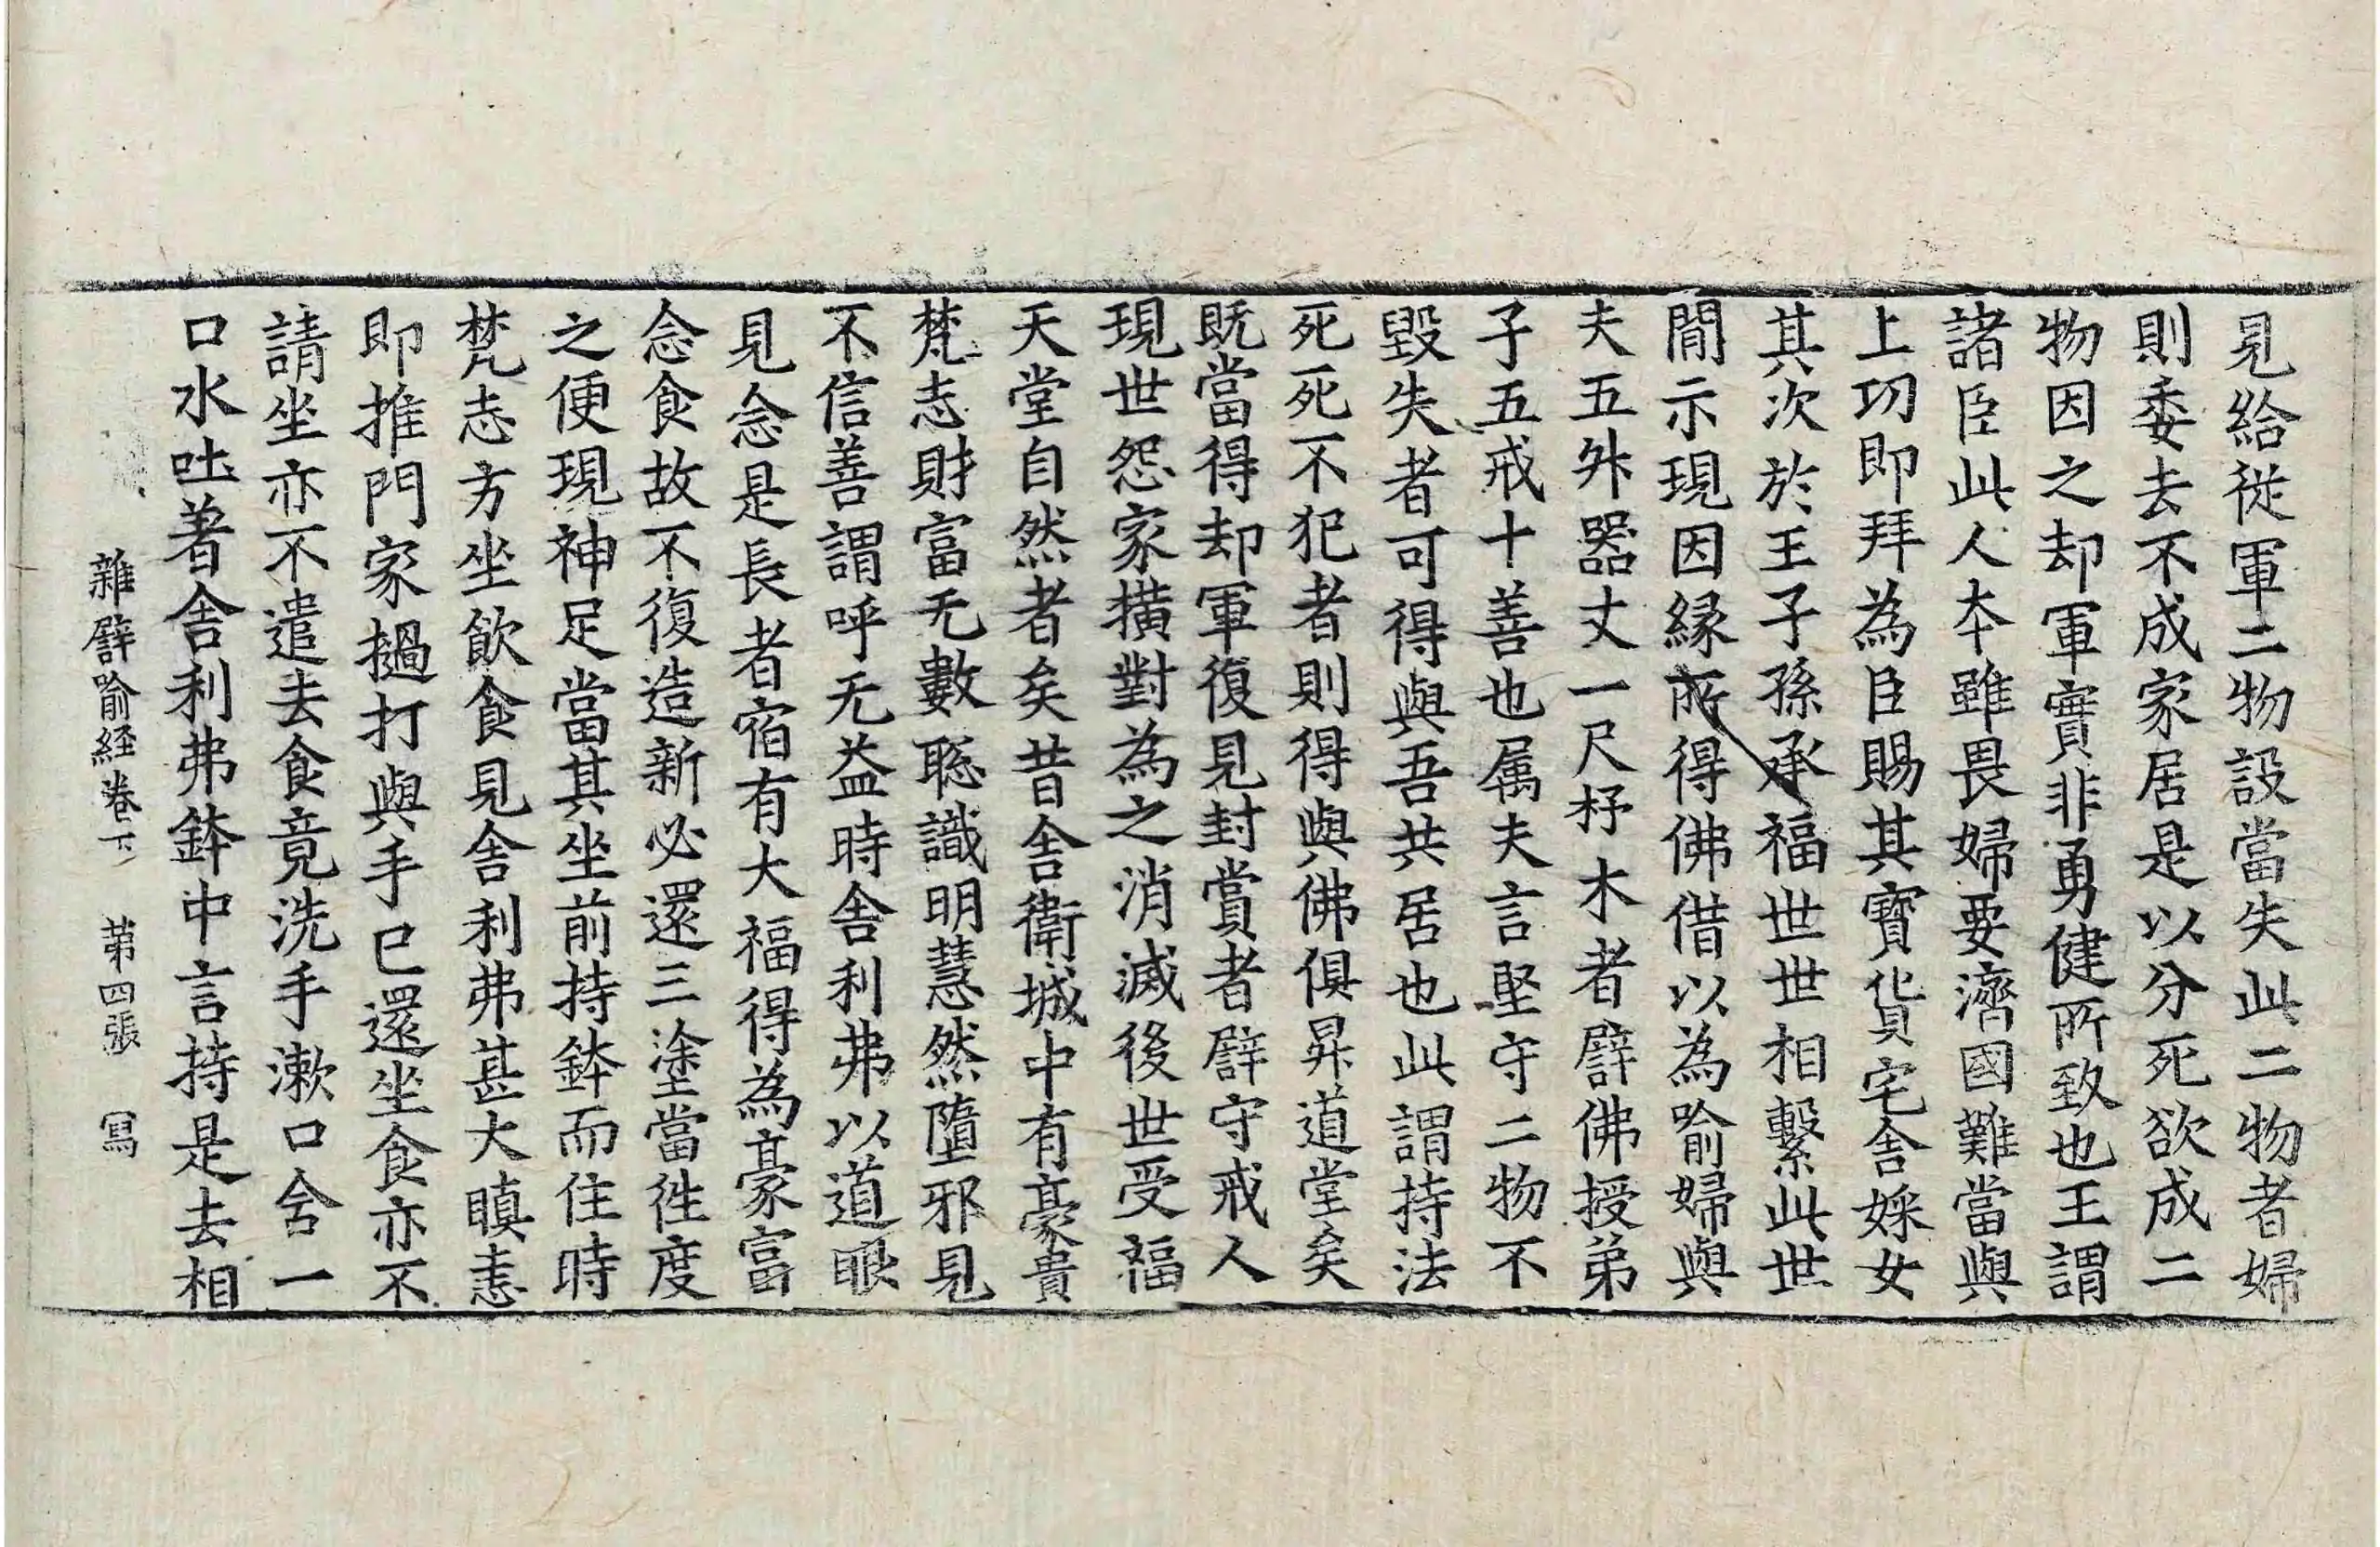 見給從軍二物設當失此二物者婦
則委去不成家居是以分死欲成二
物因之却軍實非勇健所致也王謂
諸臣此人夲雖畏婦要濟國難當與
上功即拜為臣賜其寶貨宅舍婇女
其次於王子孫承福世世相繫此世
閒示現因緣所得佛借以為喻婦與
夫五舛器丈一尺杼木者譬佛授弟
子五戒十善也属夫言堅守二物不
毀失者可得與吾共居也此謂持法
死死不犯者則得與佛俱昇道堂矣
既當得却軍復見封賞者譬守戒人
現世怨家撗對為之消滅後世受福
天堂自然者矣昔舍衛城中有豪貴
梵志財富无數聦識明慧然墮邪見
不信善謂呼无益時舍利弗以道眼
見念是長者宿有大福得為豪富
念食故不復造新必還三塗當徃度
之便現神足當其坐前持鉢而住時
梵志方坐飲食見舍利弗甚大瞋恚
即推門家撾打與手已還坐食亦不
請坐亦不遣去食竟洗手漱口含一
口水吐著舍利弗鉢中言持是去相
雜譬喻経卷下 第四張 冩